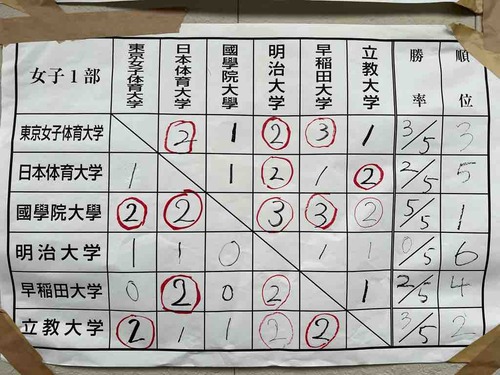 女子1部 東京女子体育大学 日本体育大学 國學院大學 明治大学 早稲田大学 立教大学 勝率 順位
東京女子体育大学 2 1 2 3 1 3/5 3
日本体育大学 1 1 2 1 2 2/5 5
國學院大學 2 2 3 3 2 5/5 1
明治大学 1 1 0 1 1 0/5 6
早稲田大学 0 2 0 2 1 2/5 4
立教大学 2 1 1 2 2 3/5 2